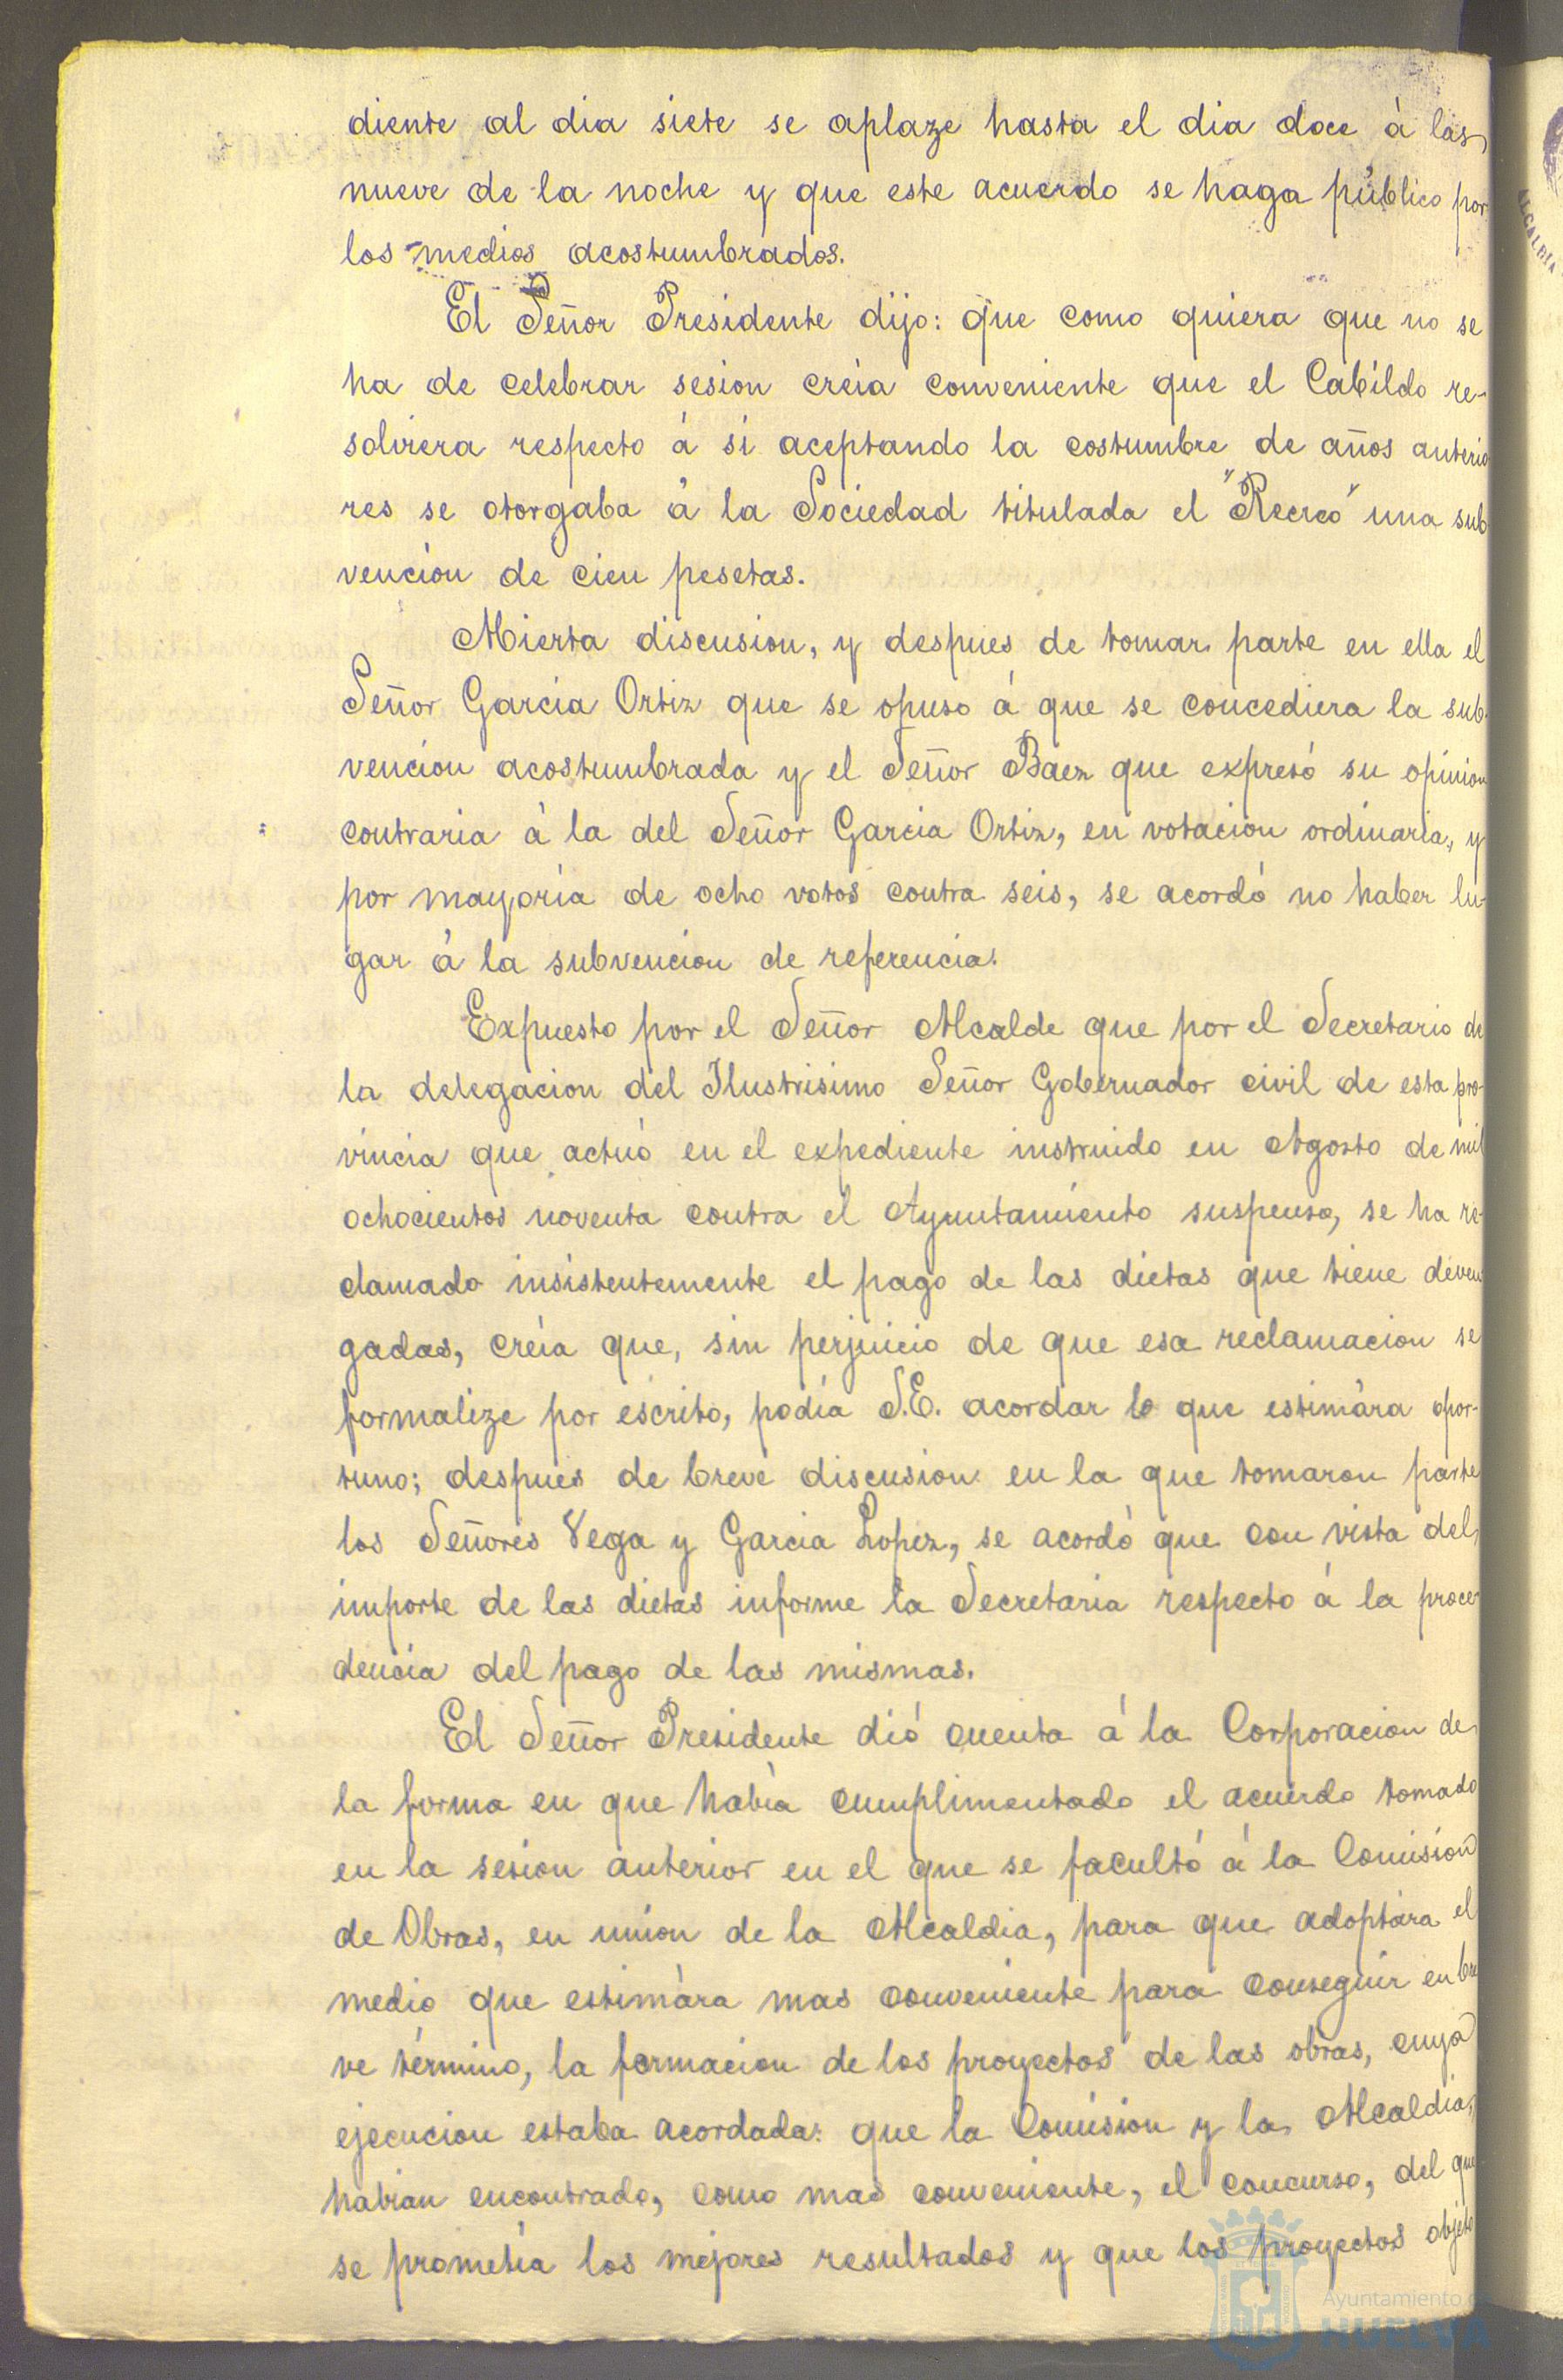 diente al dia siete se aplaze hasta el dia doce à las
nueve de la noche y que este acuerdo se haga público por
los medios acostumbrados.
El Señor Presidente dijo: que como quiera que no se
ha de celebrar sesion creia conveniente que el Cabildo re-
solviera respecto á si aceptando la costumbre de años anterio
res se otorgaba á la Sociedad titulada el "Recreo" una sub
vención de cien pesetas.
Abierta discusion, y despues de tomar parte en ella el
Señor García Ortiz que se opuso á que se concediera la sub-
vencion acostumbrada y el Señor Baez que expresó su opinion
contraria á la del Señor Garcia Ortiz, en votacion ordinaria, y
por mayoría de ocho votos contra seis, se acordó no haber lu-
gar á la subvencion de referencia.
Expuesto por el Señor Alcalde que por el Secretario de
la delegacion del Ilustrisimo Señor Gobernador civil de esta pro-
vincia que actuó en el expediente instruido en Agosto de mil
ochocientos noventa contra el Ayuntamiento suspenso, se ha re-
clamado insistentemente el pago de las dietas que tiene deven
gadas, creia que, sin perjuicio de que esa reclamacion se
formalize por escrito, podía S.E. acordar lo que estimára opor-
tuno; despues de breve discusion en la que tomaron parte
los Señores Vega y Garcia Lopez, se acordó que con vista del
importe de las dietas informe la Secretaria respecto á la proce-
dencia del pago de las mismas.
El Señor Presidente dió cuenta á la Corporacion de
la forma en que había cumplimentado el acuerdo tomado
en la sesion anterior en el que se facultó á la Comisión
de Obras, en unión de la Alcaldia, para que adoptára el
medio que estimára mas conveniente para conseguir en bre
ve término, la formacion de los proyectos de las obras, cuya
ejecucion estaba acordada: que la Comision y la Alcaldia,
habian encontrado, como mas conveniente, el concurso, del que
se prometía los mejores resultados y que los proyectos objeto
ALCALDIA
Ayuntamiento
HUELVA